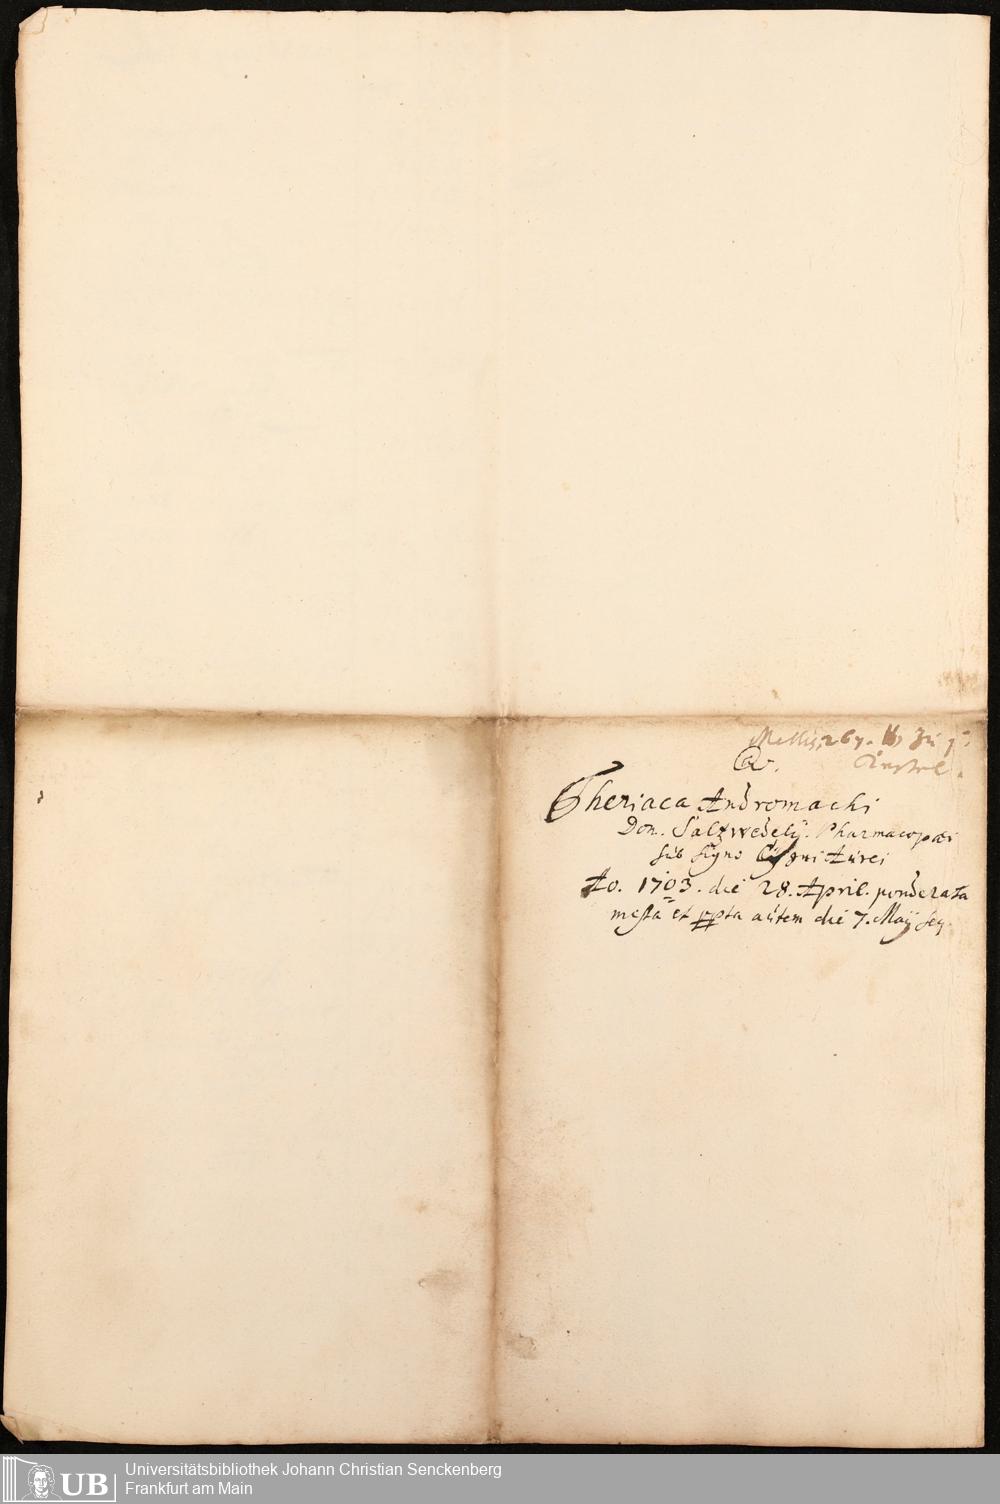 Mellis, 267. ℔, zu
Qv.
Theriaca Andromachi
Don. Salzwedelÿ. Pharmacopæi
sub signo Cÿgni Aürei
Ao. 1703. die 28. April. ponderata
et ppta aütem die 7. Maÿ
UB
Universitätsbibliothek Johann Christian Senckenberg
Frankfurt am Main